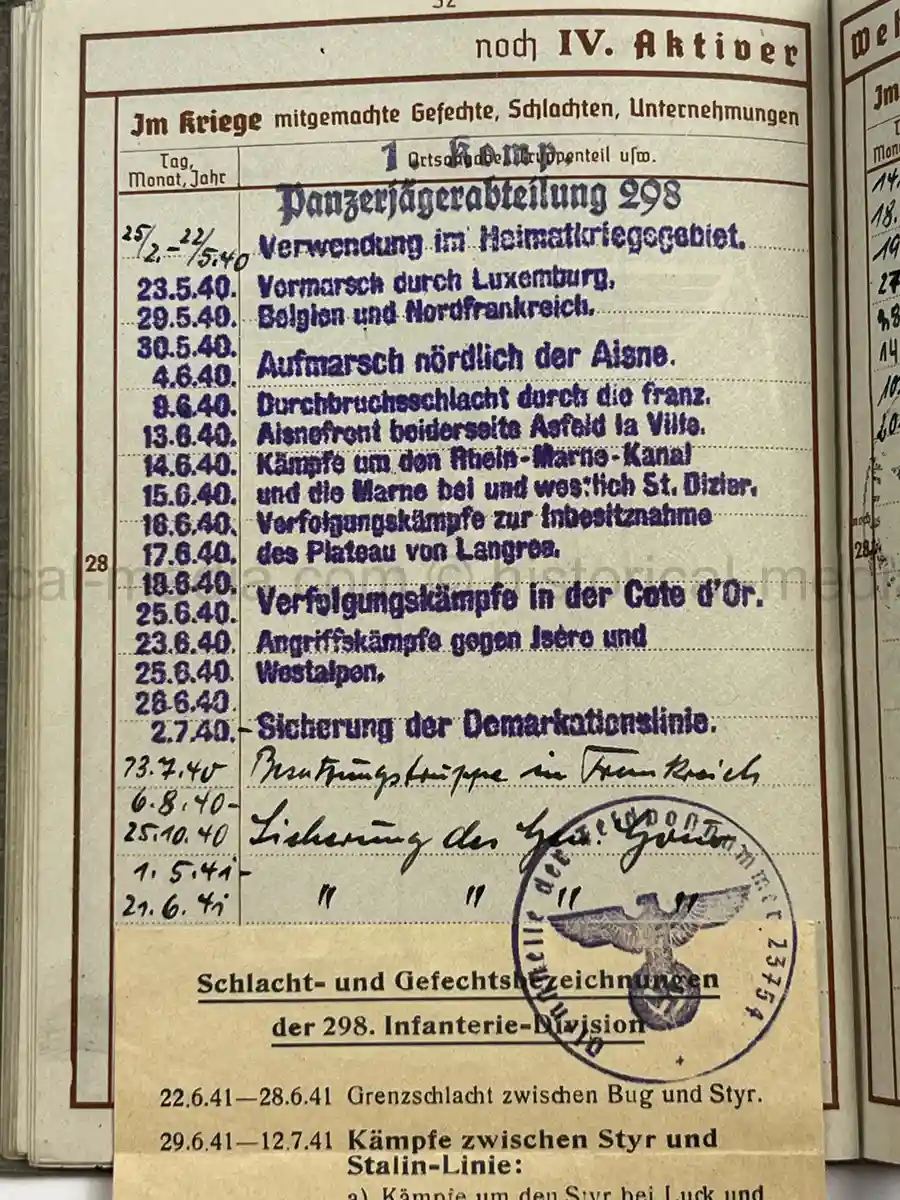 32
noch IV. Aktiver
Im Kriege mitgemachte Gefechte, Schlachten, Unternehmungen
Tag, Monat, Jahr
Ortsangabe, Truppenteil usw.
1. Komp.
Panzerjägerabteilung 298
25/2.-22/5.40 Verwendung im Heimatkriegsgebiet.
23.5.40. Vormarsch durch Luxemburg,
29.5.40. Belgien und Nordfrankreich.
30.5.40.
4.6.40. Aufmarsch nördlich der Aisne.
9.6.40. Durchbruchsschlacht durch die franz.
13.6.40. Aisnefront beiderseits Asfeld la Ville.
14.6.40. Kämpfe um den Rhein-Marne-Kanal
15.6.40. und die Marne bei und westlich St. Dizier.
16.6.40. Verfolgungskämpfe zur Inbesitznahme
17.6.40. des Plateau von Langres.
18.6.40.
25.6.40. Verfolgungskämpfe in der Cote d'Or.
23.6.40. Angriffskämpfe gegen Isère und
25.6.40. Westalpen.
26.6.40.
2.7.40.- Sicherung der Demarkationslinie.
13.7.40 Besatzungstruppe in Frankreich
6.8.40-
25.10.40 Sicherung des Gen. Gouv.
1.5.41-
21.6.41 " " " "
28
Dienststelle der Feldpostnummer 23754
Schlacht- und Gefechtsbezeichnungen
der 298. Infanterie-Division
22.6.41—28.6.41 Grenzschlacht zwischen Bug und Styr.
29.6.41—12.7.41 Kämpfe zwischen Styr und
Stalin-Linie:
a) Kämpfe um den Styr bei Luck und
Im
14.
18.
19
27
14
10.
28
historical-media.com © historical-media